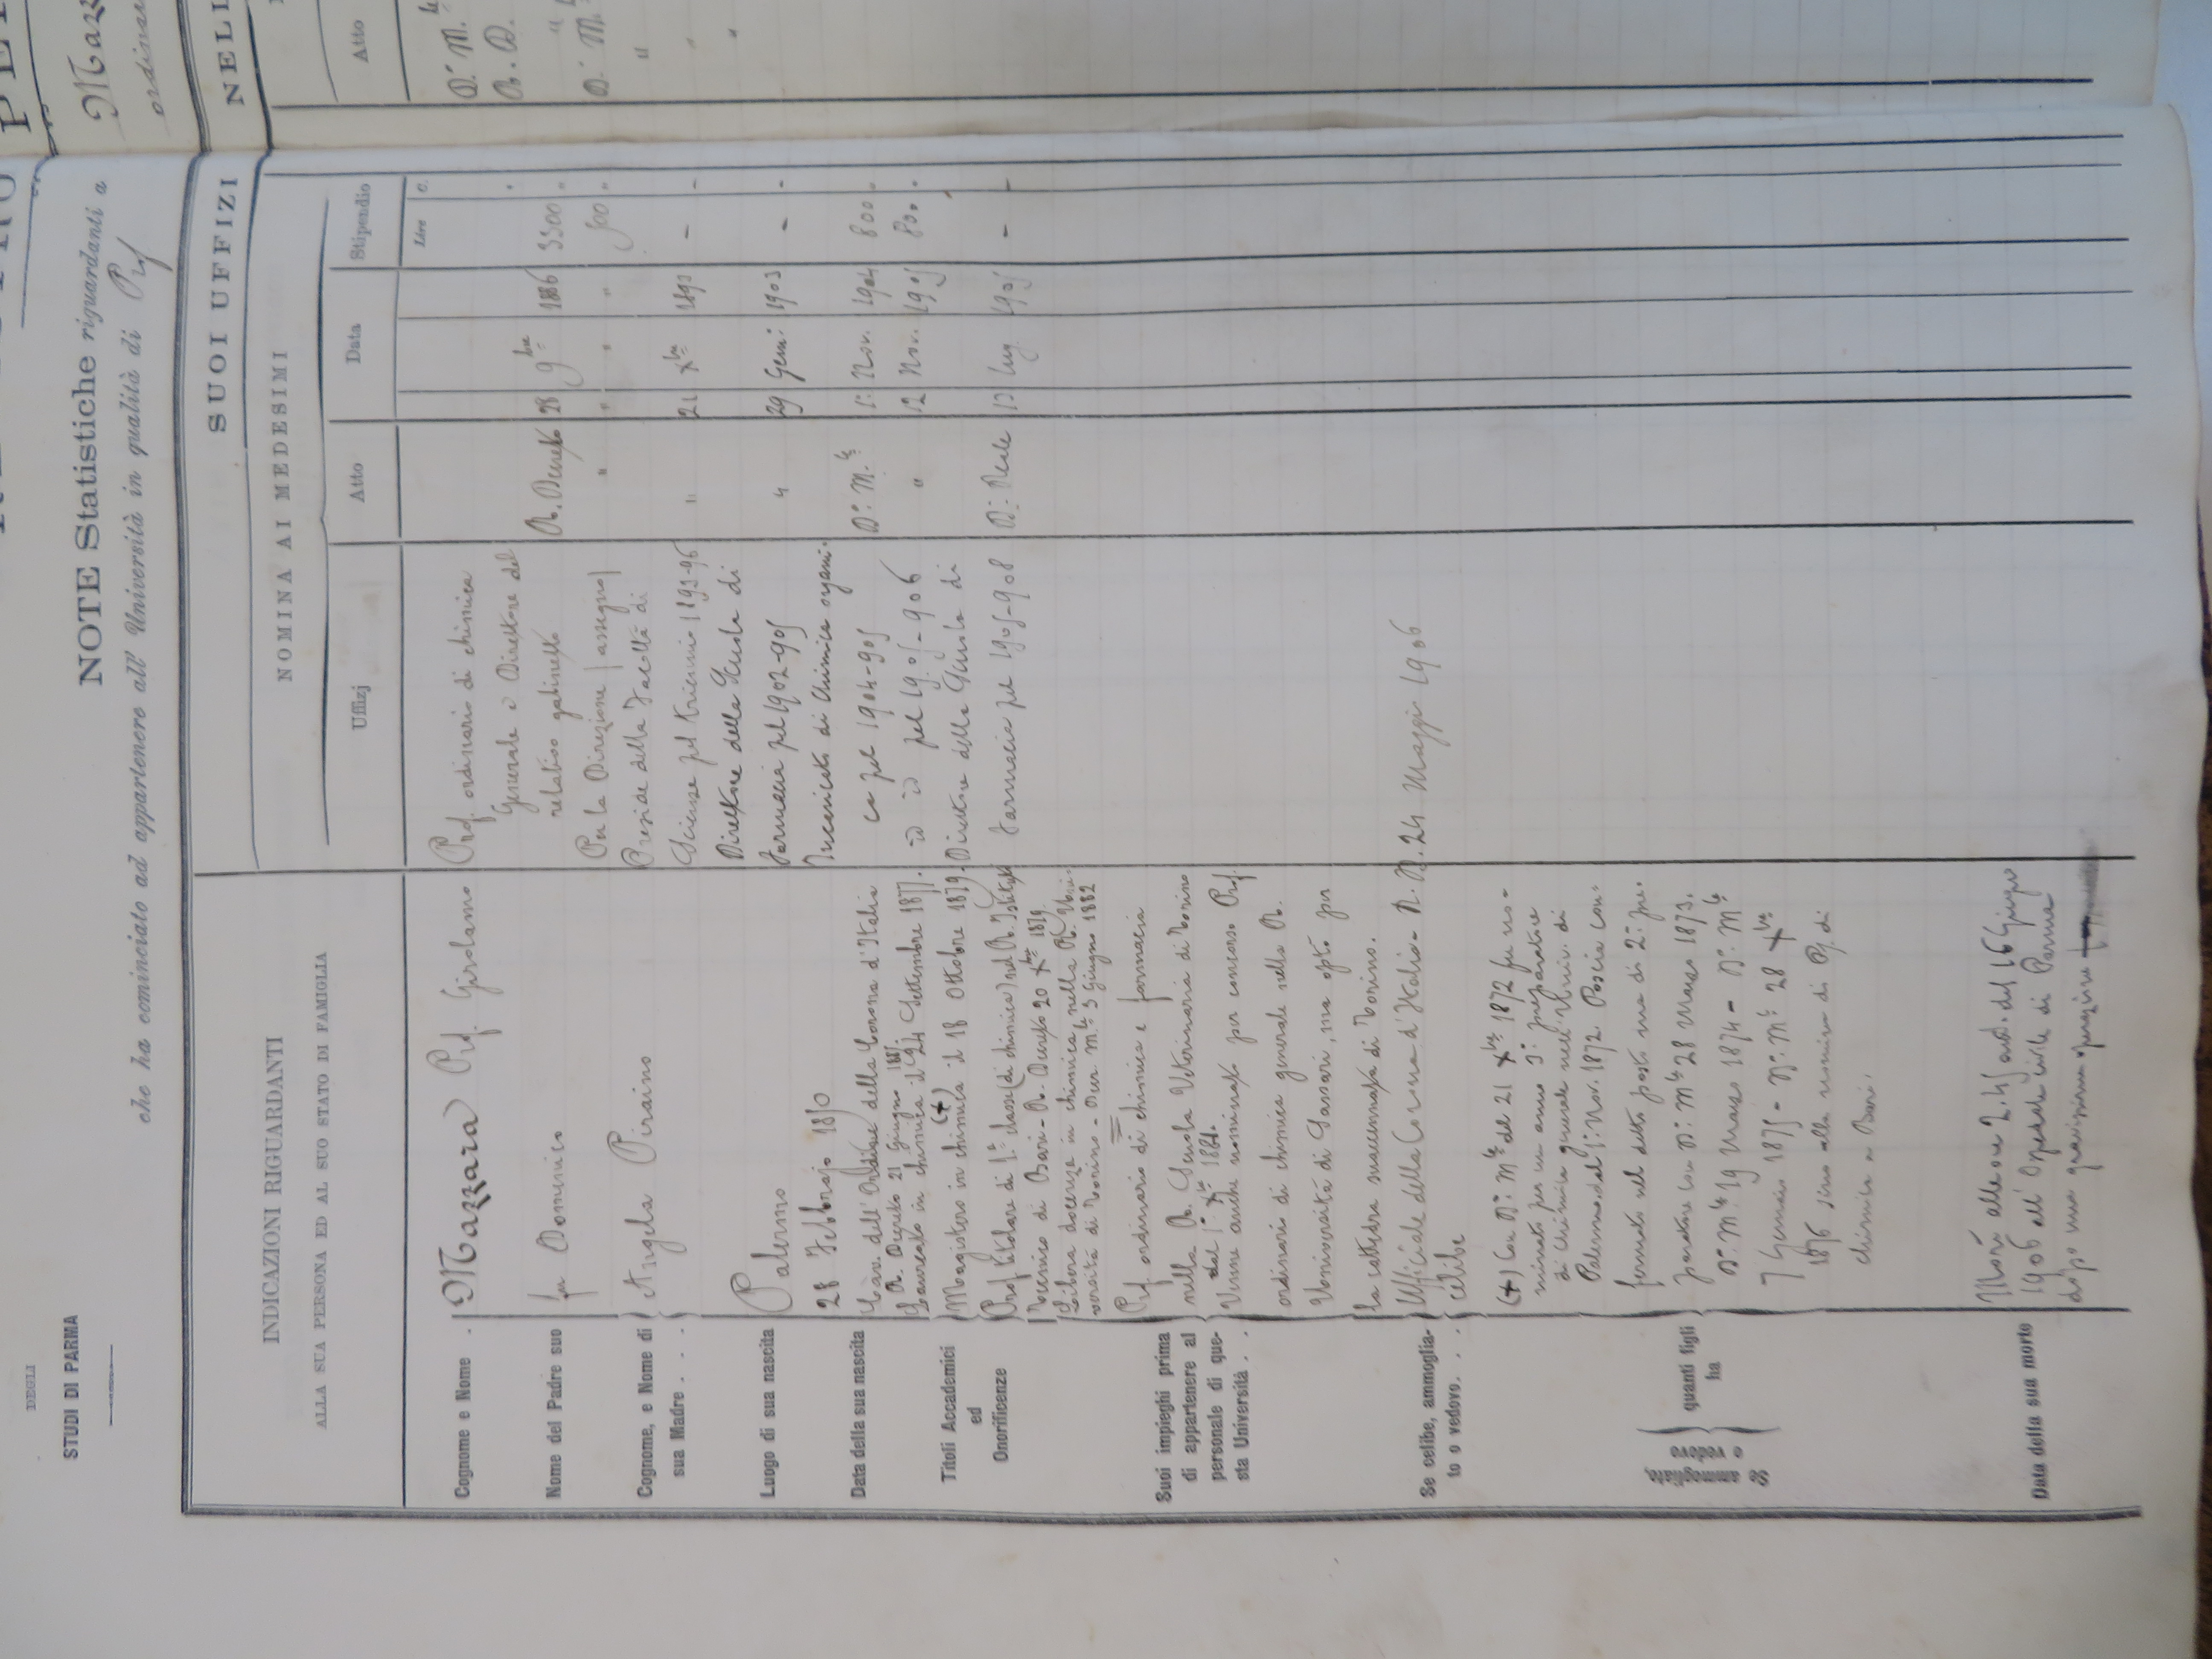 DEGLI
STUDI DI PARMA
NOTE Statistiche riguardanti a
che ha cominciato ad appartenere all' Università in qualità di Prof
Mazz
ordinar
INDICAZIONI RIGUARDANTI
ALLA SUA PERSONA ED AL SUO STATO DI FAMIGLIA
Cognome e Nome . Mazzara Prof. Girolamo
Nome del Padre suo fu Domenico
Cognome, e Nome di
sua Madre . . . Angela Piraino
Luogo di sua nascita Palermo
Data della sua nascita 28 Febbrajo 1850
Titoli Accademici
ed
Onorificenze
Cav. dell' Ordine della Corona d'Italia
R. Decreto 21 Giugno 1885.
Laureato in chimica il 24 Settembre 1877.
(+)
Magistero in chimica il 18 Ottobre 1879.
Prof. titolare di 1.a classe (di chimica) nel R. Istituto
Tecnico di Bari - R. Decreto 20 Xbre 1879.
Libera docenza in chimica nella R. Uni-
versità di Torino - Decr. M.le 3 Giugno 1882
Suoi impieghi prima
di appartenere al
personale di que-
sta Università . .
Prof. ordinario di chimica e farmacia
nella R. Scuola Veterinaria di Torino
dal 1.° Xbre 1881.
Venne anche nominato per concorso Prof.
ordinario di chimica generale nella R.
Università di Sassari, ma optò per
la cattedra summenzta di Torino.
Ufficiale della Corona d'Italia - R. D. 24 Maggio 1906
Se celibe, ammoglia-
to o vedovo. . . celibe
(+) Con D.° M.le del 21 Xbre 1872 fu no-
minato per un anno 3.° preparatore
di Chimica generale nell' Univ. di
Palermo dal 1.° Nov. 1872. Poscia con-
fermato nel detto posto ma di 2.° pre-
paratore con D.° M.le 28 Marzo 1873.
D.° M.le 19 Marzo 1874 - D.° M.le
7 Gennaio 1875 - D.° M.le 28 Xbre
1876 sino alla nomina di Pf. di
chimica a Bari.
quanti figli
ha
Data della sua morte
Morì alle ore 2.45 ant. del 16 Giugno
1906 all' Ospedale civile di Parma
dopo una gravissima operazione
SUOI UFFIZI
NOMINA AI MEDESIMI
Uffizj Atto Data Stipendio
Lire C.
Prof. ordinario di chimica
Generale e Direttore del
relativo gabinetto R. Decreto 28 9bre 1886 3300 "
Per la Direzione (assegno) " " " " 500 "
Preside della Facoltà di
Scienze pel triennio 1893-96 " 21 Xbre 1893 - -
Direttore della Scuola di
Farmacia pel 1902-905 " 29 Gen: 1903 - -
Incaricato di Chimica organi-
ca pel 1904-905 D.° M.le 1.° Nov. 1904 800 "
id id pel 1905-906 " 12 Nov. 1905 800 "
Direttore della Scuola di
Farmacia pel 1905-908 D.° Reale 13 Lug 1905 - -
NELL
Atto
D.° M.le
R. D.
D.° M.le
"
"
"